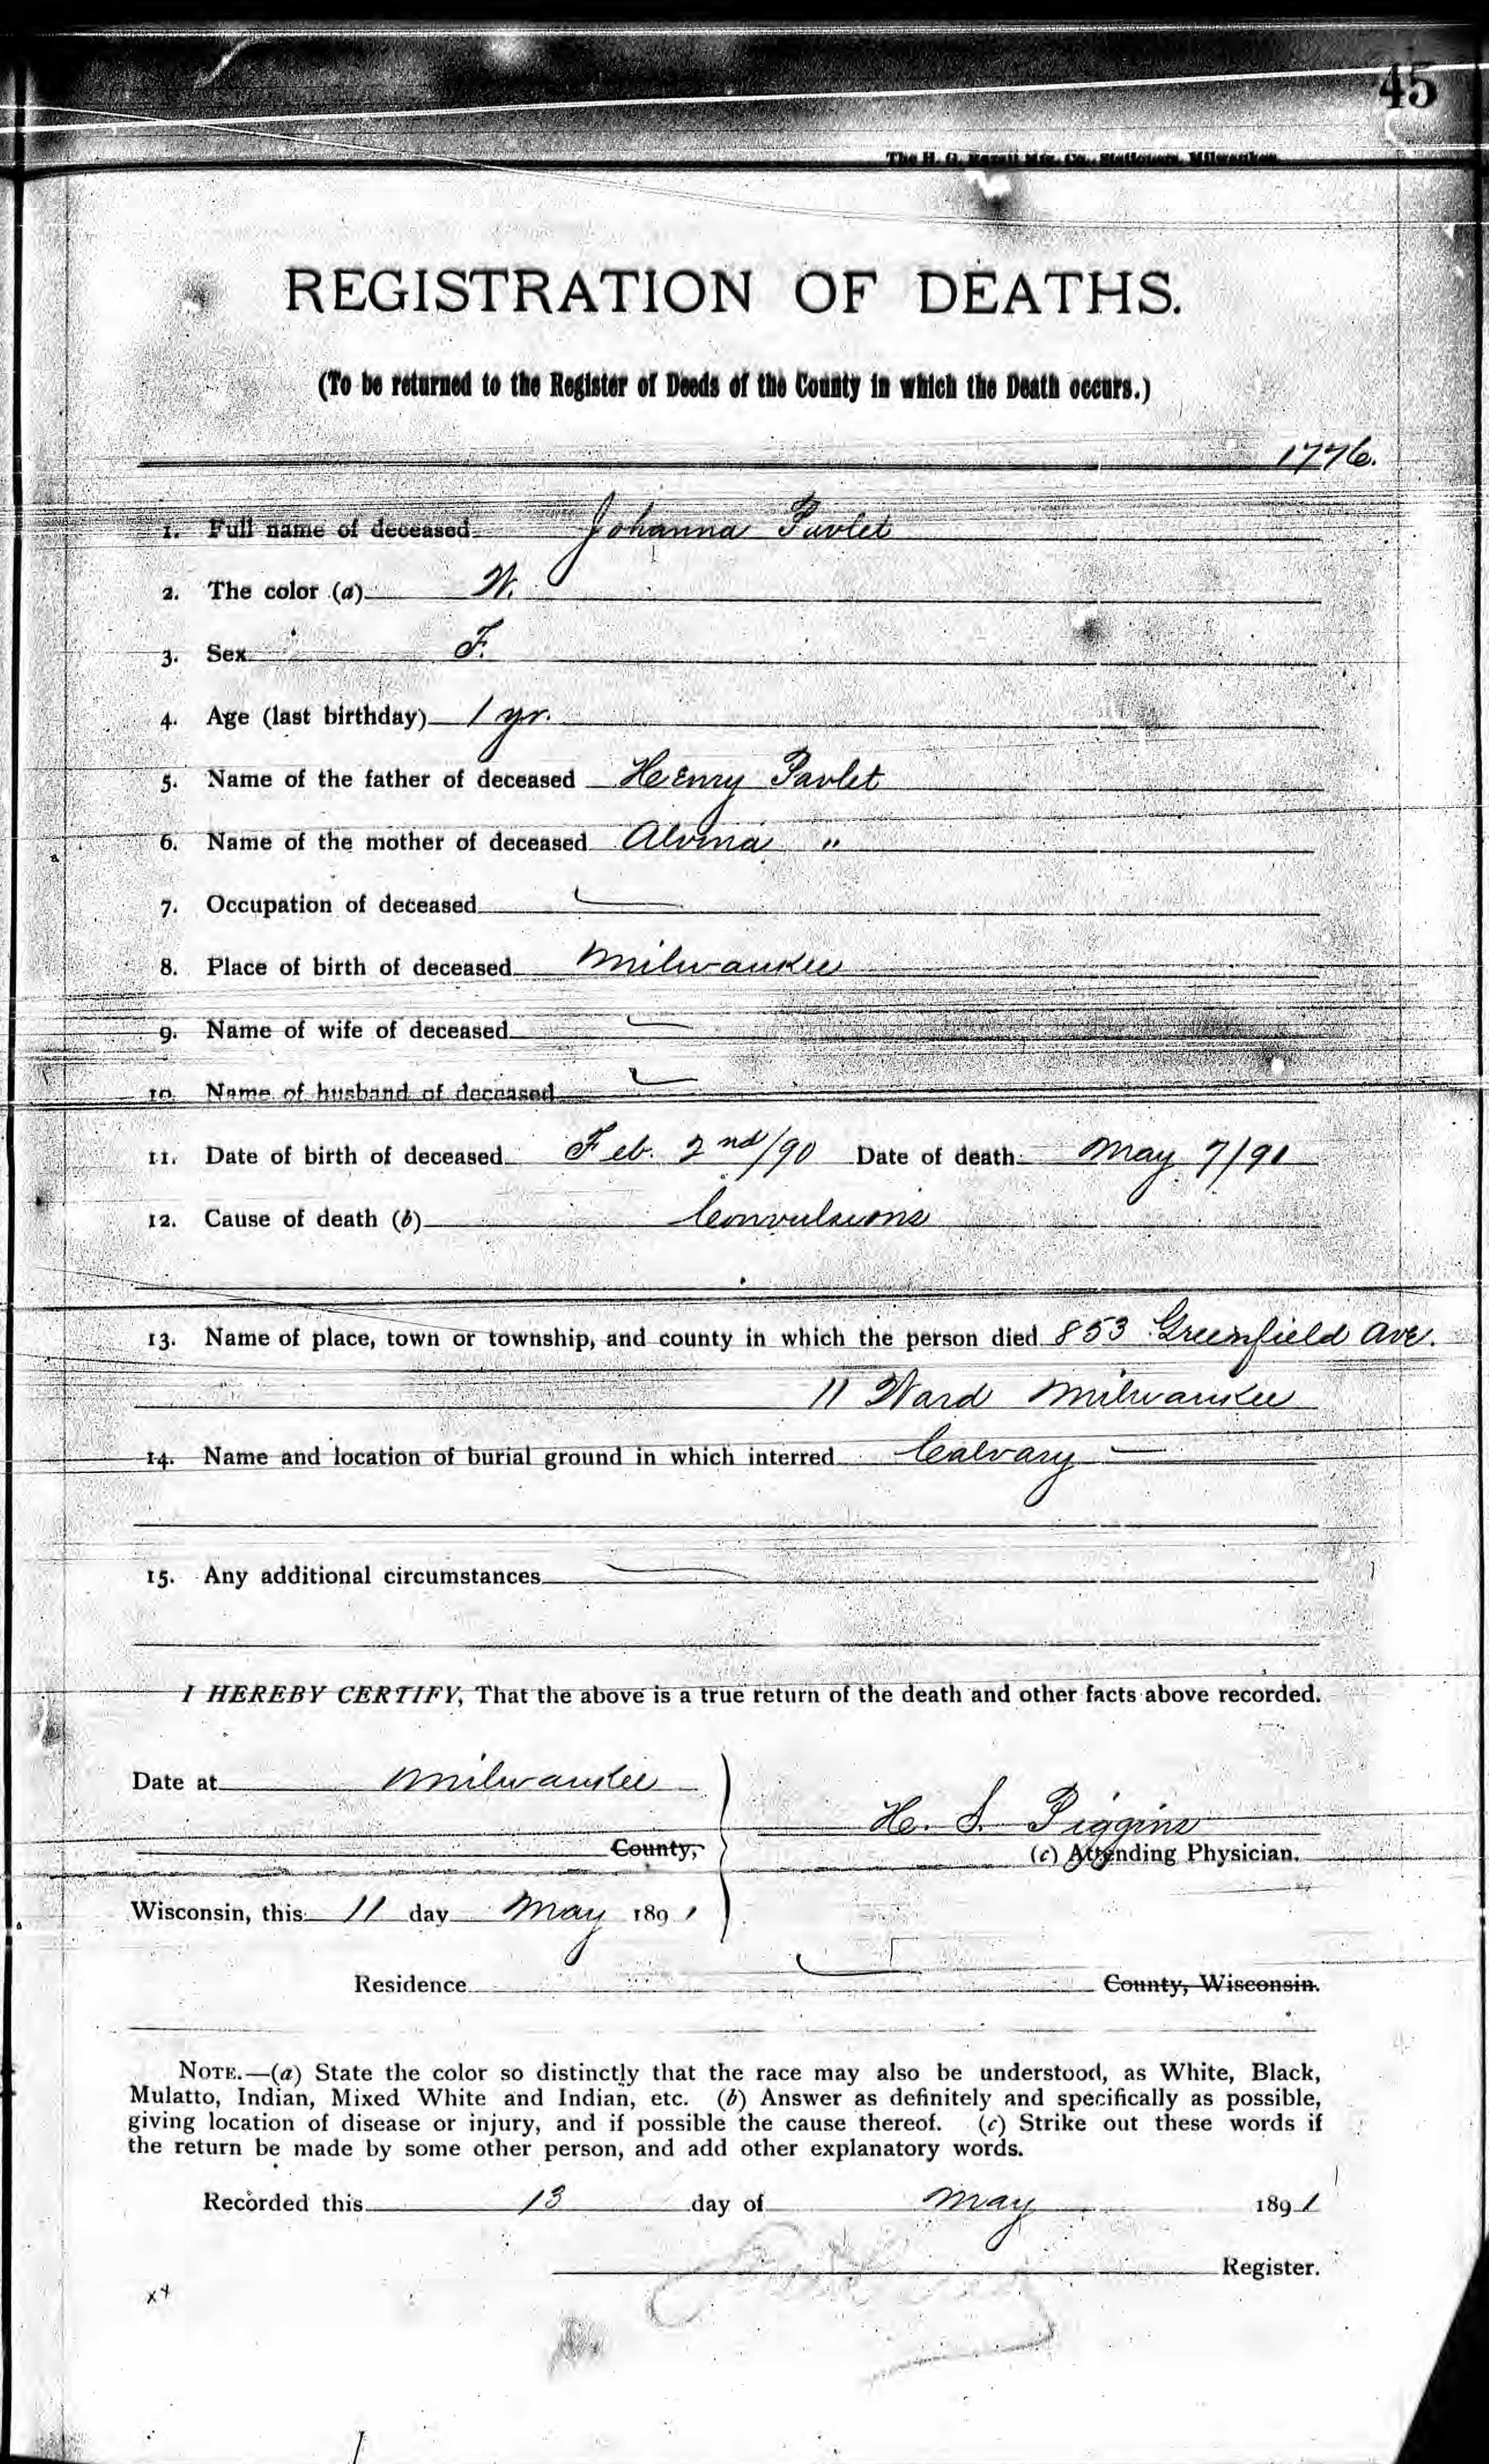 45
The H. G. Razall Mfg. Co., Stationers, Milwaukee
REGISTRATION OF DEATHS.
(To be returned to the Register of Deeds of the County in which the Death occurs.)
1776.
1. Full name of deceased Johanna Pavlet
2. The color (a) W.
3. Sex F.
4. Age (last birthday) 1 yr.
5. Name of the father of deceased Henry Pavlet
6. Name of the mother of deceased Alvina "
7. Occupation of deceased
8. Place of birth of deceased Milwaukee
9. Name of wife of deceased
10. Name of husband of deceased
11. Date of birth of deceased Feb. 2nd/90 Date of death May 7/91
12. Cause of death (b) Convulsions
13. Name of place, town or township, and county in which the person died 853 Greenfield Ave.
11 Ward Milwaukee
14. Name and location of burial ground in which interred Calvary —
15. Any additional circumstances
I HEREBY CERTIFY, That the above is a true return of the death and other facts above recorded.
Date at Milwaukee
H. S. Piggins
County,
(c) Attending Physician.
Wisconsin, this 11 day May 1891
Residence County, Wisconsin.
NOTE.—(a) State the color so distinctly that the race may also be understood, as White, Black,
Mulatto, Indian, Mixed White and Indian, etc. (b) Answer as definitely and specifically as possible,
giving location of disease or injury, and if possible the cause thereof. (c) Strike out these words if
the return be made by some other person, and add other explanatory words.
Recorded this 13 day of May 1891
Register.
x4